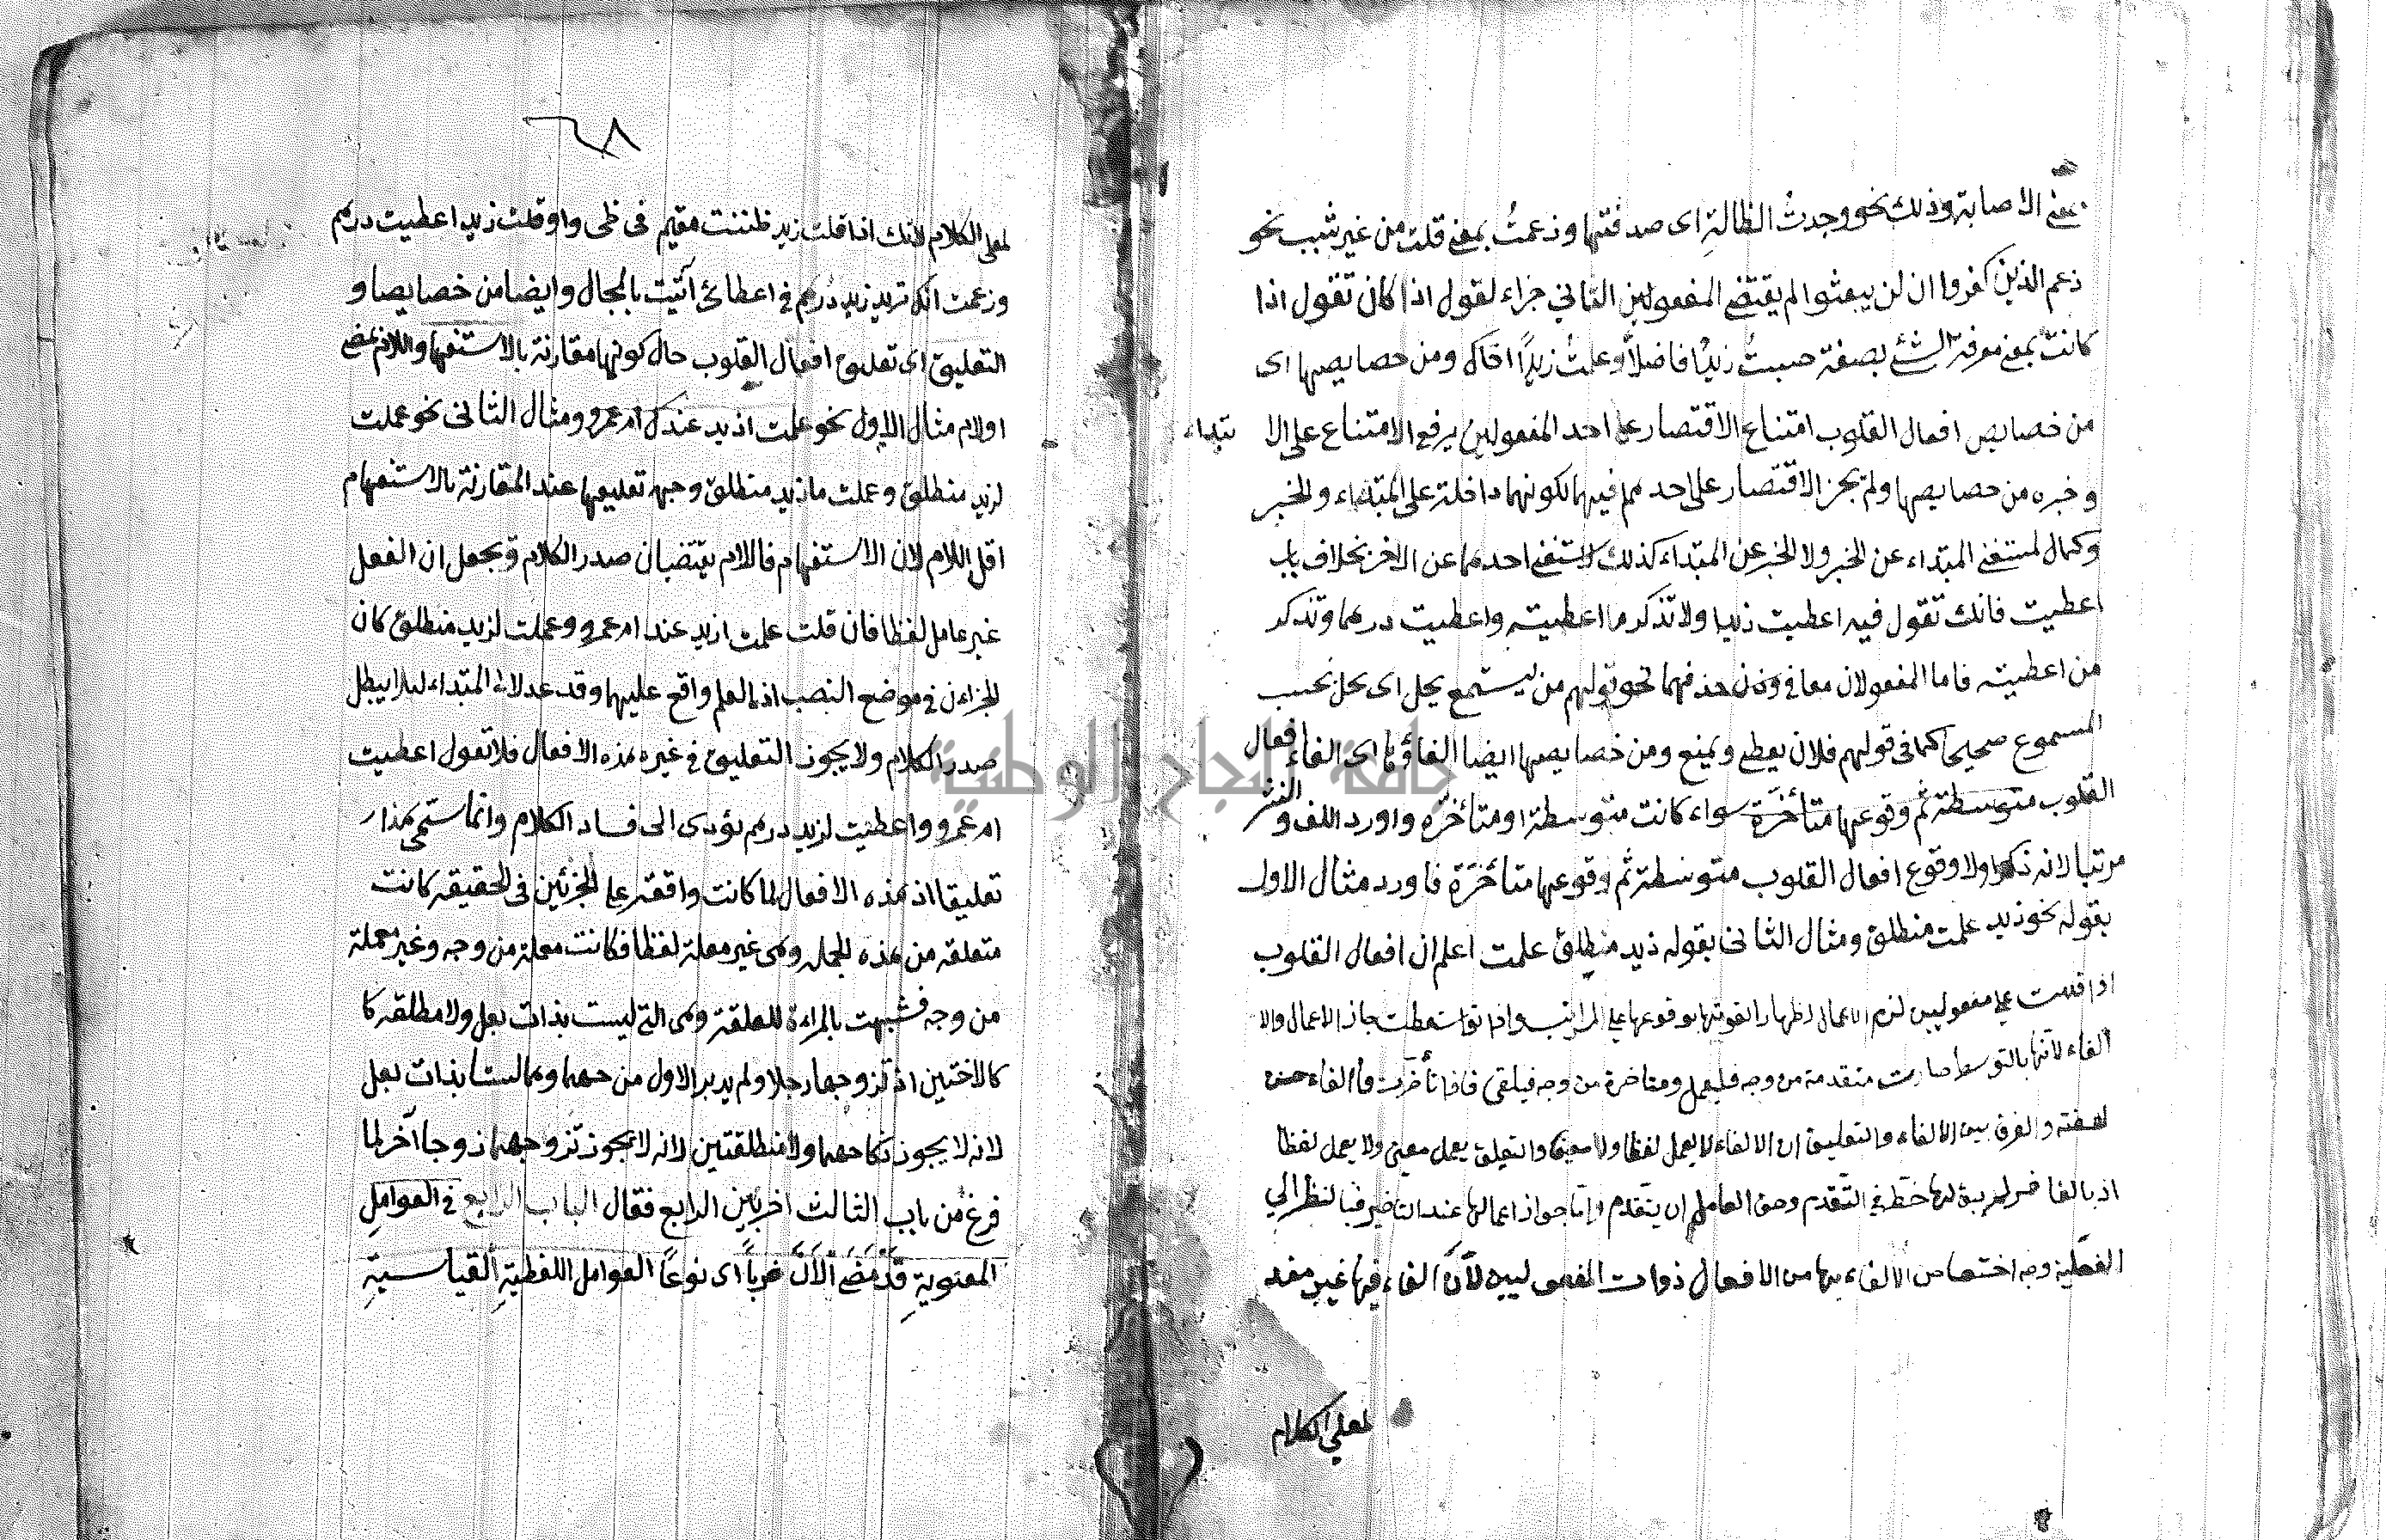 بمعنى الاصابة وذلك نحو وجدتُ الظالة اى صدفتها وزعمتُ بمعنى قلت من غير شبب نحو
زعم الذين كفروا ان لن يبعثوا لم يقتضى المفعولين الثانى جزاء لقول اذا كان تقول اذا
كانت بمعنى معرفة الشئ بصفة حسبتُ زيدًا فاضلاً وعلمتُ زيدًا اخاك ومن حصايصها اى
من خصايص افعال القلوب امتناع الاقتصار على احد المفعولين برفع الامتناع على الا بتداء
وخبره من حصايصها ولم يجز الاقتصار على احد مفعوليهما لكونهما داخلة على المبتداء والخبر
وكمال لمستغنى المبتداء عن الخبر ولا الخبر عن المبتداء كذلك لاستغنى احدهما عن الاخر بخلاف باب
اعطيت فانك تقول فيه اعطيت زيدا ولا تذكر ما اعطيته واعطيت درهما وتذكر
من اعطيته فاما المفعولان معا فى حذفهما نحو قولهم من يستمع يحل اى يحل بحسب
المسموع صحيحا كما فى قولهم فلان يعطى ويمنع ومن خصايصها ايضا الغاؤها اى الغاء افعال
القلوب متوسطة ثم وقوعها متأخرة سواء كانت متوسطة او متأخرة واورد اللف والنشر
مرتبا لانه ذكر اولا وقوع افعال القلوب متوسطة ثم وقوعها متأخرة فاورد مثال الاول
بقوله نحو زيد علمت منطلق ومثال الثانى بقوله زيد منطلق علمت اعلم ان افعال القلوب
اذا قدمت على مفعوليين لزم الاعمال لظهار القوتها بوقوعها على المراتب واذا توسطت جاز الاعمال والا
الغاء لانها بالتوسط صارت متقدمة من وجه فليعمل ومتاخرة من وجه فيلغى فاذا تأخرت فالغاء حسن
لضعفه والفرق بين الالغاء والتعليق ان الالغاء لا يعمل لفظا ولا معنى والتعليق يعمل معنى ولا يعمل لفظا
اذ بالغا لها حظ فى التقدم وحق العامل ان يتقدم واما جواز اعمالها عند التاخير فبالنظر الى
الفعلية وجه اختصاص الالغاء بها من الافعال ذوات المفعوليين لأن الغاء فيها غير مفد
لمعلى الكلام
٦٨
لمعلى الكلام لانك اذا قلت زيد ظننت مقيم فى ظنى واوقلت زيد اعطيت درهم
وزعمت انك تريد زيد درهم فى اعطائى آتيت بالمجال وايضا من خصايصا و
التعليق اى تعليق افعال القلوب حال كونها مقارنة بالاستفها واللام بمضى
اولام مثال الاول نحو علمت ازيد عندك ام عمرو ومثال الثانى نحو علمت
لزيد منطلق وعلمت ما زيد منطلق وجهه تعليقها عند المقارنة بالاستفهام
اقل اللام لان الاستفهام فالام يقتضيان صدر الكلام ويجعل ان الفعل
غير عامل لفظا فان قلت علمت ازيد عندا ام عمرو وعملت لزيد منطلق كان
الجزاءن فى موضع النصب اذ العلم واقع عليهما وقد عدلا لى المبتداء ليلا يبطل
صدر الكلام ولا يجوز التعليق فى غير هذه الافعال فلا تقول اعطيت
ام عمرو واعطيت لزيد درهم يؤدى الى فساد الكلام وانما ستمى هذا
تعليقا اذ هذه الافعال لما كانت واقعة على الجزئين فى الحقيقه كانت
متعلقه من هذه الجمله وهى غير معملة لفظا فكانت معملة من وجه وغير معملة
من وجه فشبهت بالمراءة المعلقة وهى التى ليست بذات بعل ولا مطلقه كا
كالاختين اذ تزوجها رجلا ولم يدبر الاول من حهما وهما ليستا بذات بعل
لانه لا يجوز نكاحهما ولا منطلقتين لانه لا يجوز تزوجهما زوجا آخر لما
فرغ من باب الثالث اخر بين الرابع فقال الباب الرابع فى العوامل
المعنوية قَدْ مَضَى الآنَ ضربًا اى نوعًا العوامل اللفظية القياسية
جامعة النجاح الوطنية